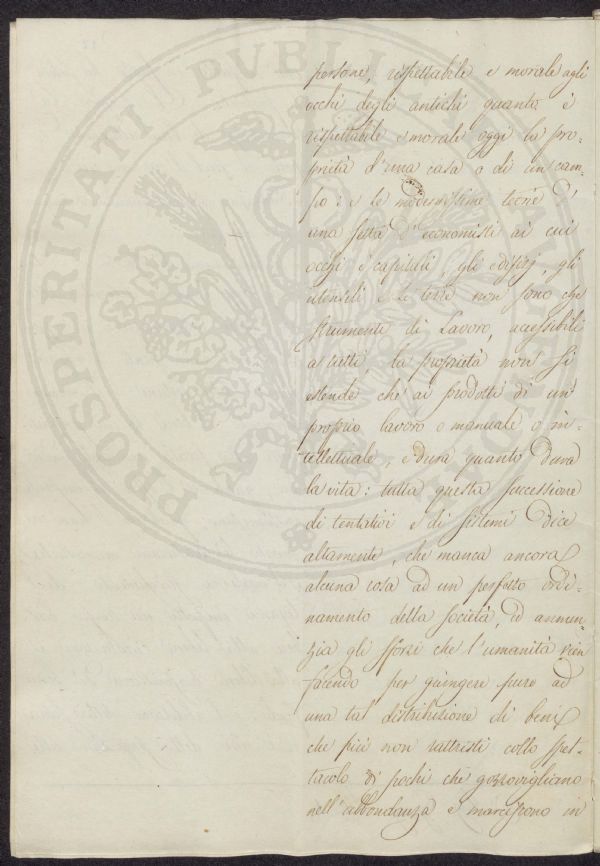 PROSPERITATI PUBLICAE AUGENDAE
persone, rispettabile e morale agli
occhi degli antichi quanto è
rispettabile e morale oggi la pro-
prietà d'una casa o di un cam-
po: e le modernissime teorie d'
una setta d'economisti ai cui
occhi i capitali, gli edifizj, gli
utensili e le terre non sono che
strumenti di Lavoro, accessibili
a tutti, la proprietà non si
estende che ai prodotti di un
proprio lavoro o manuale o in-
tellettuale, e dura quanto dura
la vita: tutta questa successione
di tentativi e di sistemi dice
altamente, che manca ancora
alcuna cosa ad un perfetto ordi-
namento della Società, ed annun-
zia gli sforzi che l'umanità vien
facendo per giungere pure ad
una tal distribuzione di beni
che più non rattristi collo spet-
tacolo di pochi che gozzovigliano
nell'abbondanza e marciscono in